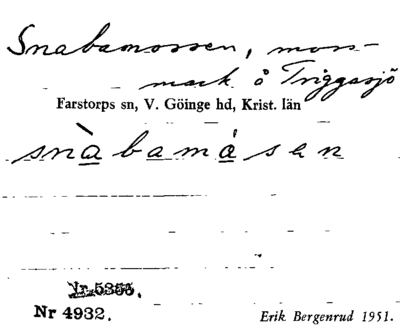 Snabamossen, moss-
mark å Triggasjö
Farstorps sn, V. Göinge hd, Krist. län
snàbamåsen
Nr 5355.
Nr 4932.
Erik Bergenrud 1951.